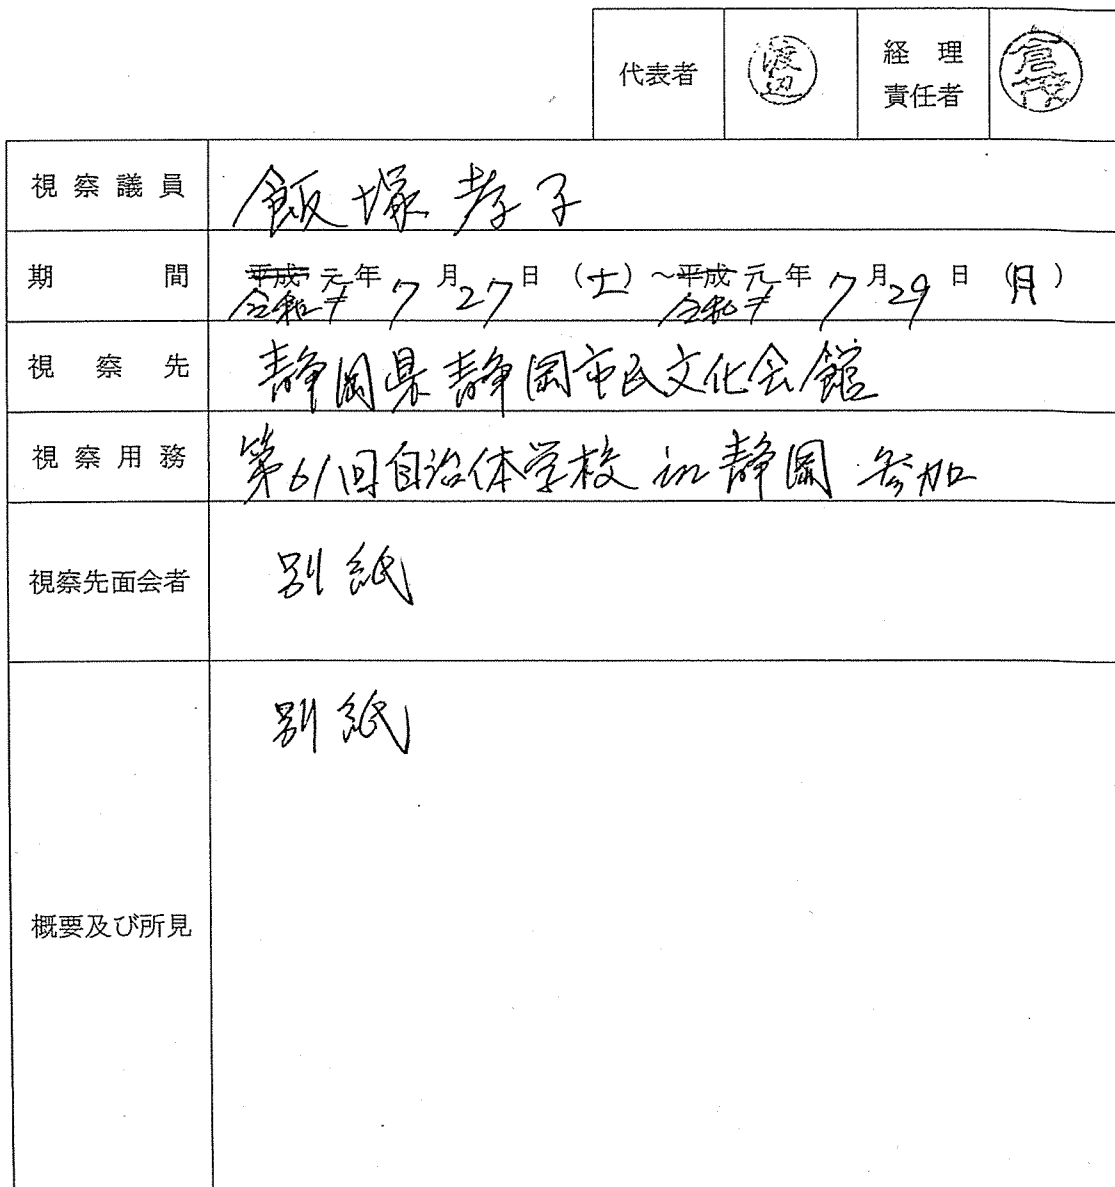 代表者 渡辺 経理責任者 倉茂
視察議員 飯塚孝子
期間 平成元年7月27日(土)~平成元年7月29日(月)
令和 令和
視察先 静岡県静岡市民文化会館
視察用務 第61回自治体学校in静岡 参加
視察先面会者 別紙
概要及び所見 別紙